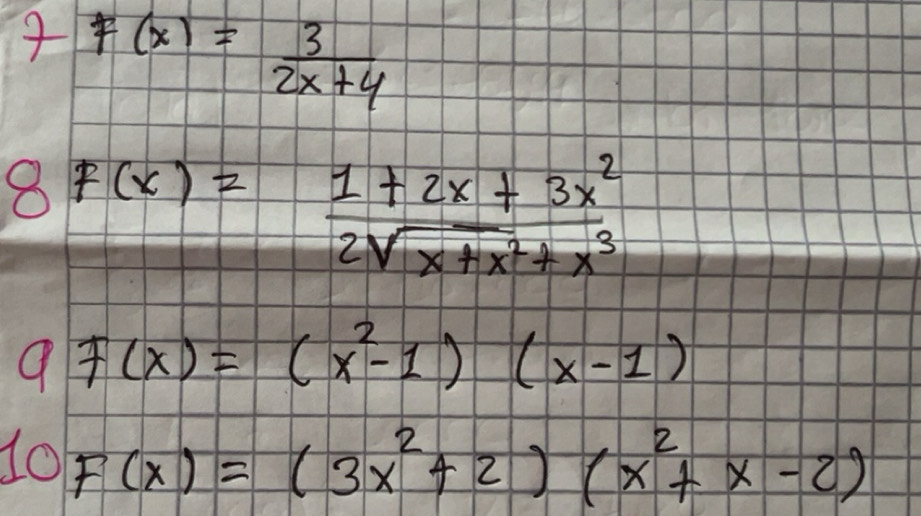 7 F(x) = 3/(2x+4)
8 F(x) = (1 + 2x + 3x²)/(2√(x + x² + x³))
9 F(x) = (x²-1) (x-1)
10 F(x) = (3x²+2) (x²+ x -2)